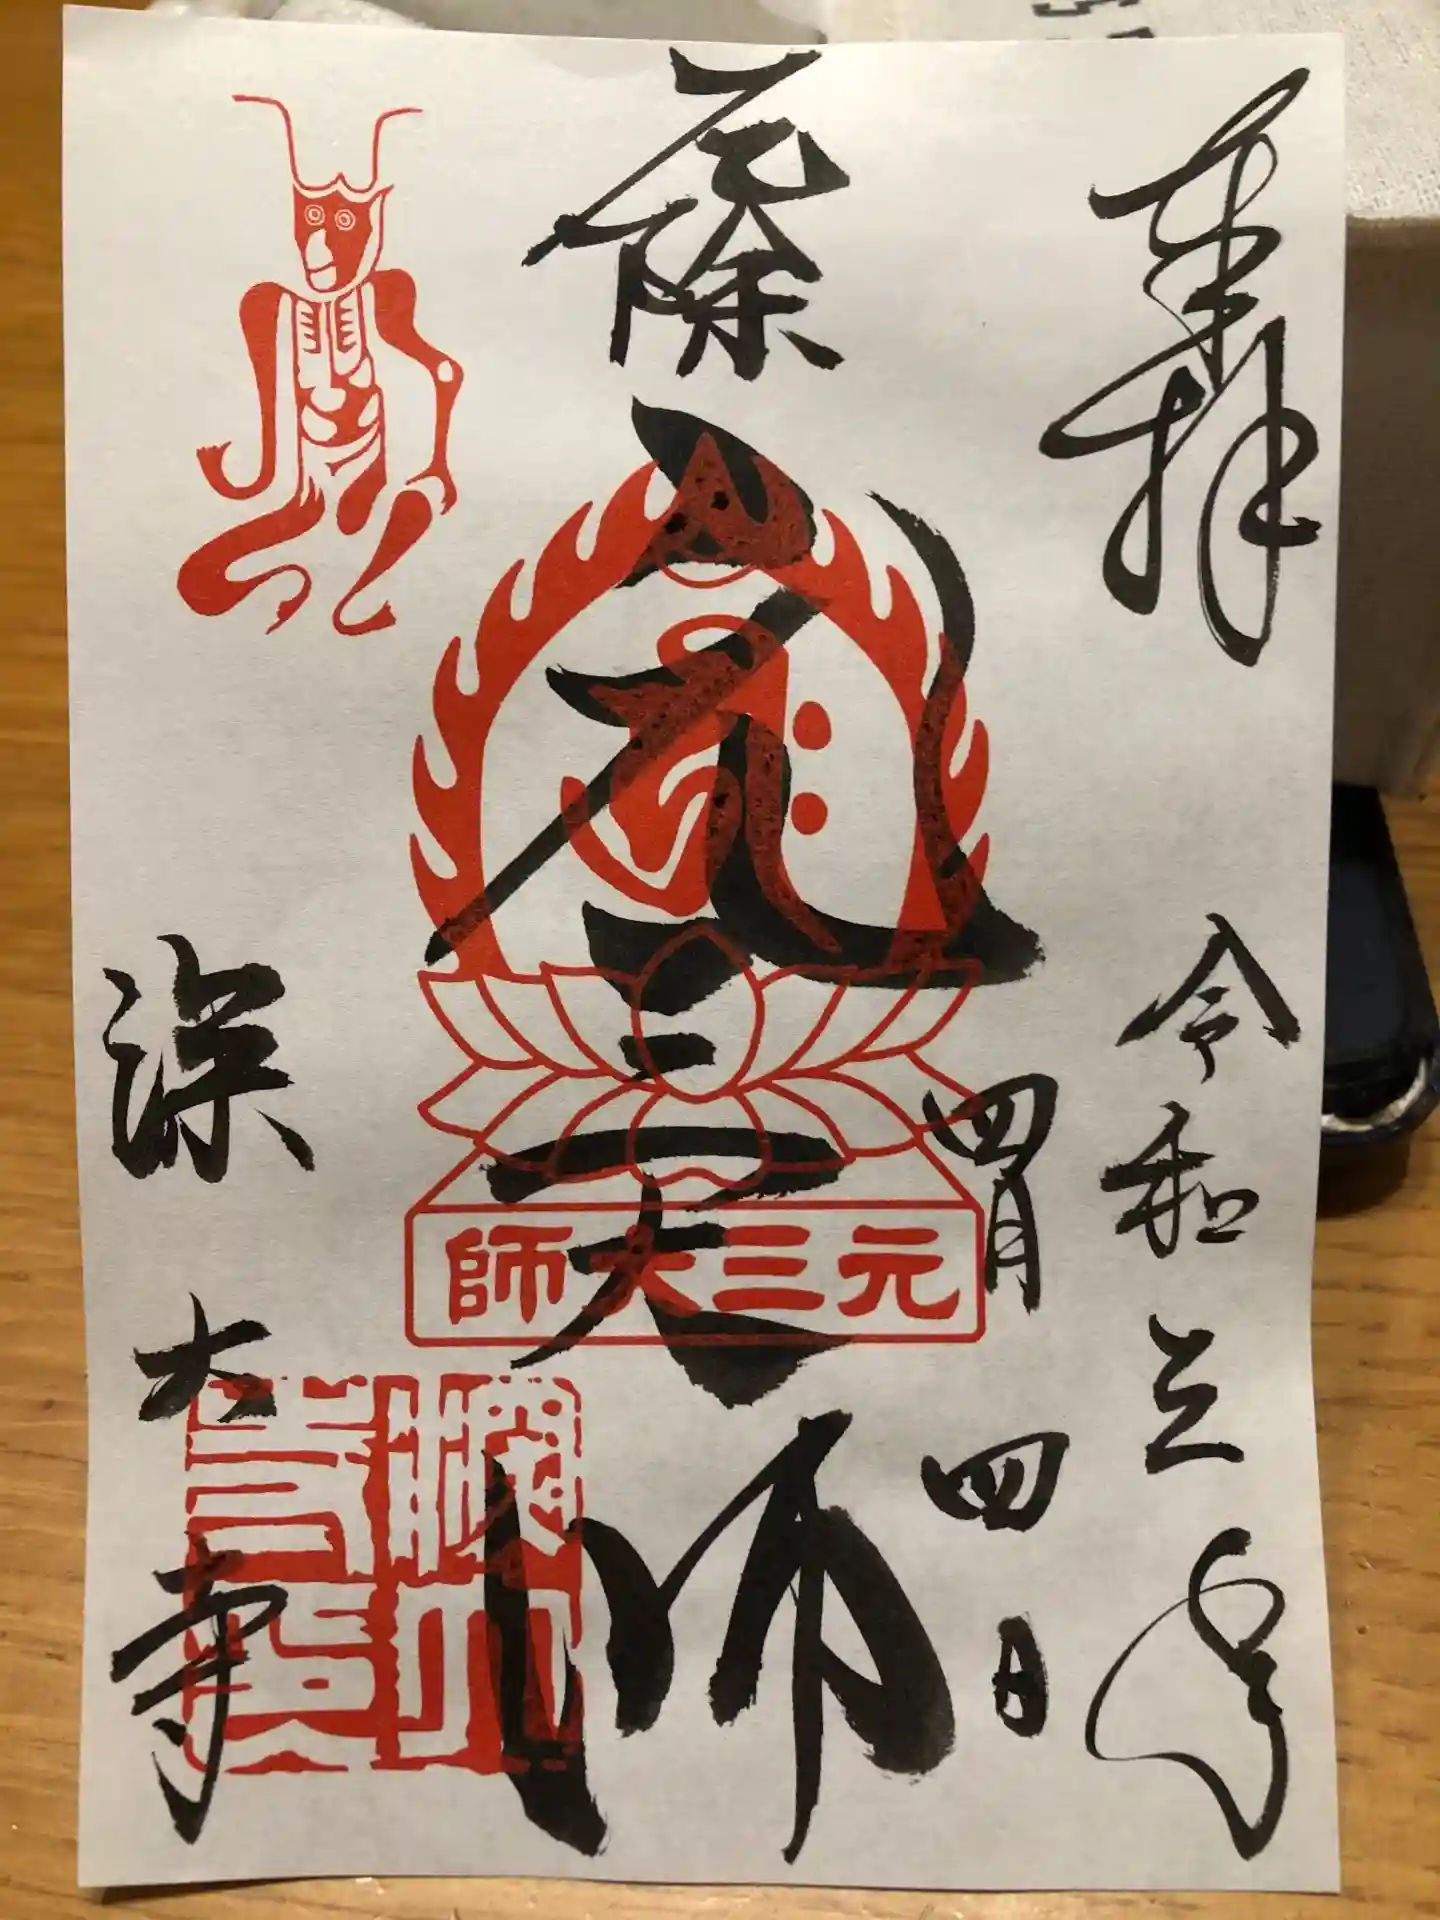 奉拝
令和三年
四月四日
厄除
元三大師
元三大師
深大寺
深大寺印